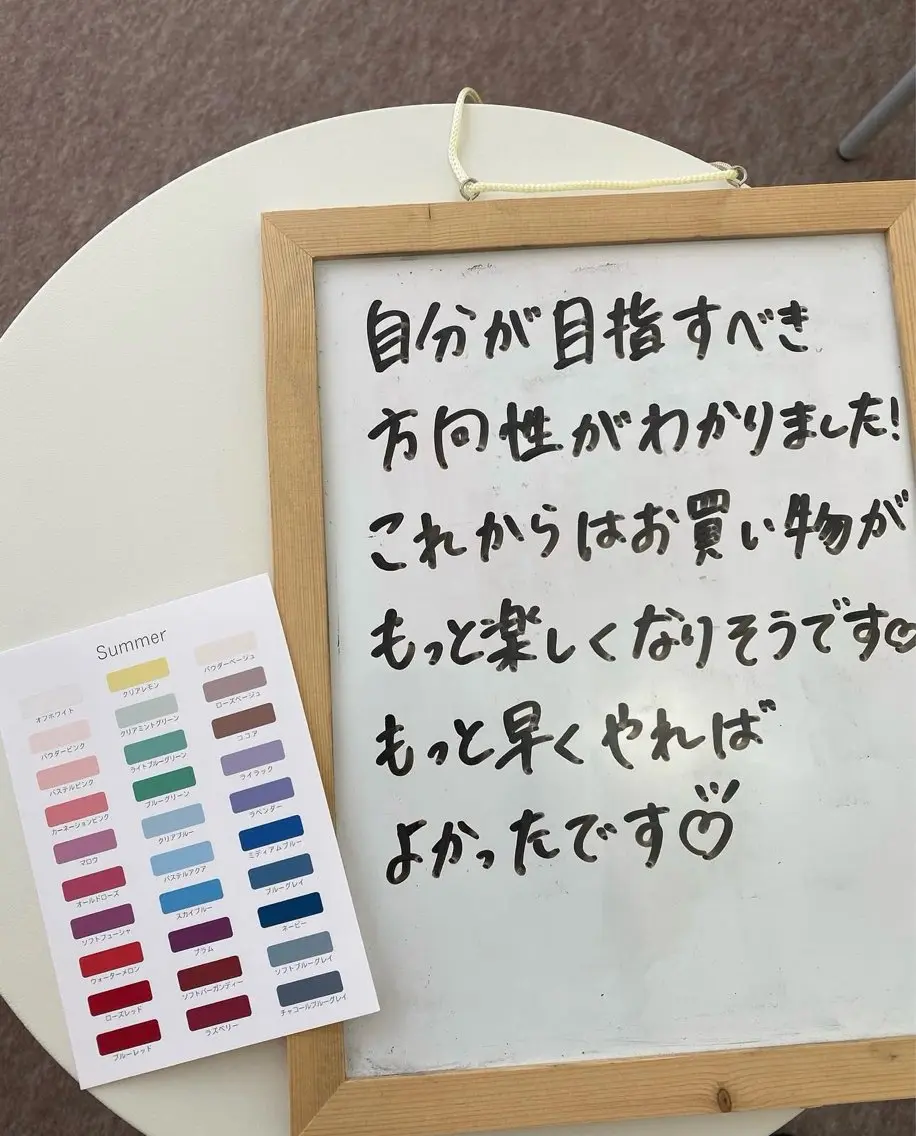 自分が目指すべき
方向性がわかりました!
これからはお買い物が
もっと楽しくなりそうです♡
もっと早くやれば
よかったです♡
Summer
オフホワイト
パウダーピンク
パステルピンク
カーネーションピンク
マロウ
オールドローズ
ソフトフューシャ
ウォーターメロン
ローズレッド
ブルーレッド
クリアレモン
クリアミントグリーン
ライトブルーグリーン
ブルーグリーン
クリアブルー
パステルアクア
スカイブルー
プラム
ソフトバーガンディー
ラズベリー
パウダーベージュ
ローズベージュ
ココア
ライラック
ラベンダー
ミディアムブルー
ブルーグレイ
ネービー
ソフトブルーグレイ
チャコールブルーグレイ